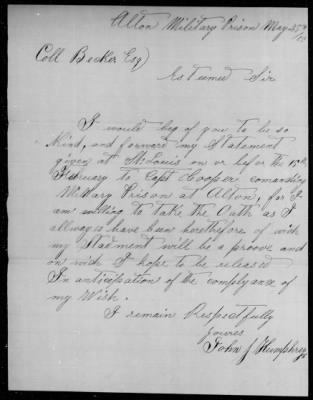 Alton Military Prison May 25th
Coll Becker Esq
Esteemed Sir
I would beg of you to be so
kind, and forward my Statement
given at St Louis on or befor the 15th
February to Capt Cooper comanding
Military Prison at Alton, for I
am willing to take the Oath as I
allways have been heretofore of wich
my Statment will be a proove and
on wich I hope to be released
In anticipation of the complyance of
my Wish.
I remain Respectfully
Yours
John J Humphrey